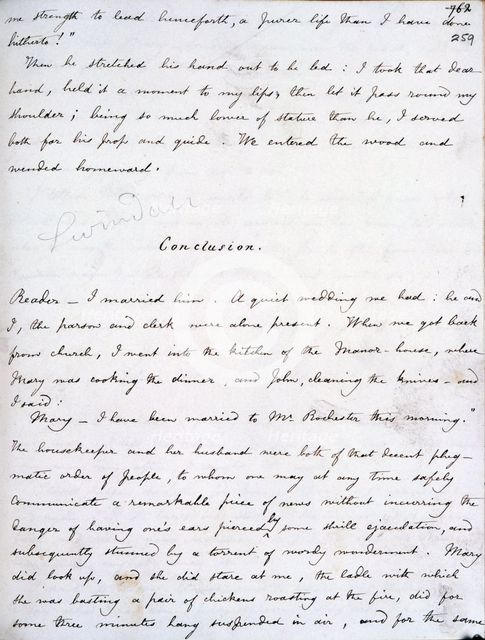 762
me strength to lead henceforth, a purer life than I have done
259
hitherto!"
Then he stretched his hand out to be led: I took that dear
hand, held it a moment to my lips, then let it pass round my
shoulder; being so much lower of stature than he, I served
both for his prop and guide. We entered the wood and
wended homeward.
Conclusion.
Reader - I married him. A quiet wedding we had: he and
I, the parson and clerk were alone present. When we got back
from church, I went into the kitchen of the Manor-house, where
Mary was cooking the dinner, and John, cleaning the knives - and
I said:
"Mary - I have been married to Mr Rochester this morning."
The housekeeper and her husband were both of that decent phleg-
matic order of people, to whom one may at any time safely
communicate a remarkable piece of news without incurring the
danger of having one's ears pierced by some shrill ejaculation, and
subsequently stunned by a torrent of wordy wonderment. Mary
did look up, and she did stare at me, the ladle with which
she was basting a pair of chickens roasting at the fire, did for
some three minutes hang suspended in air, and for the same